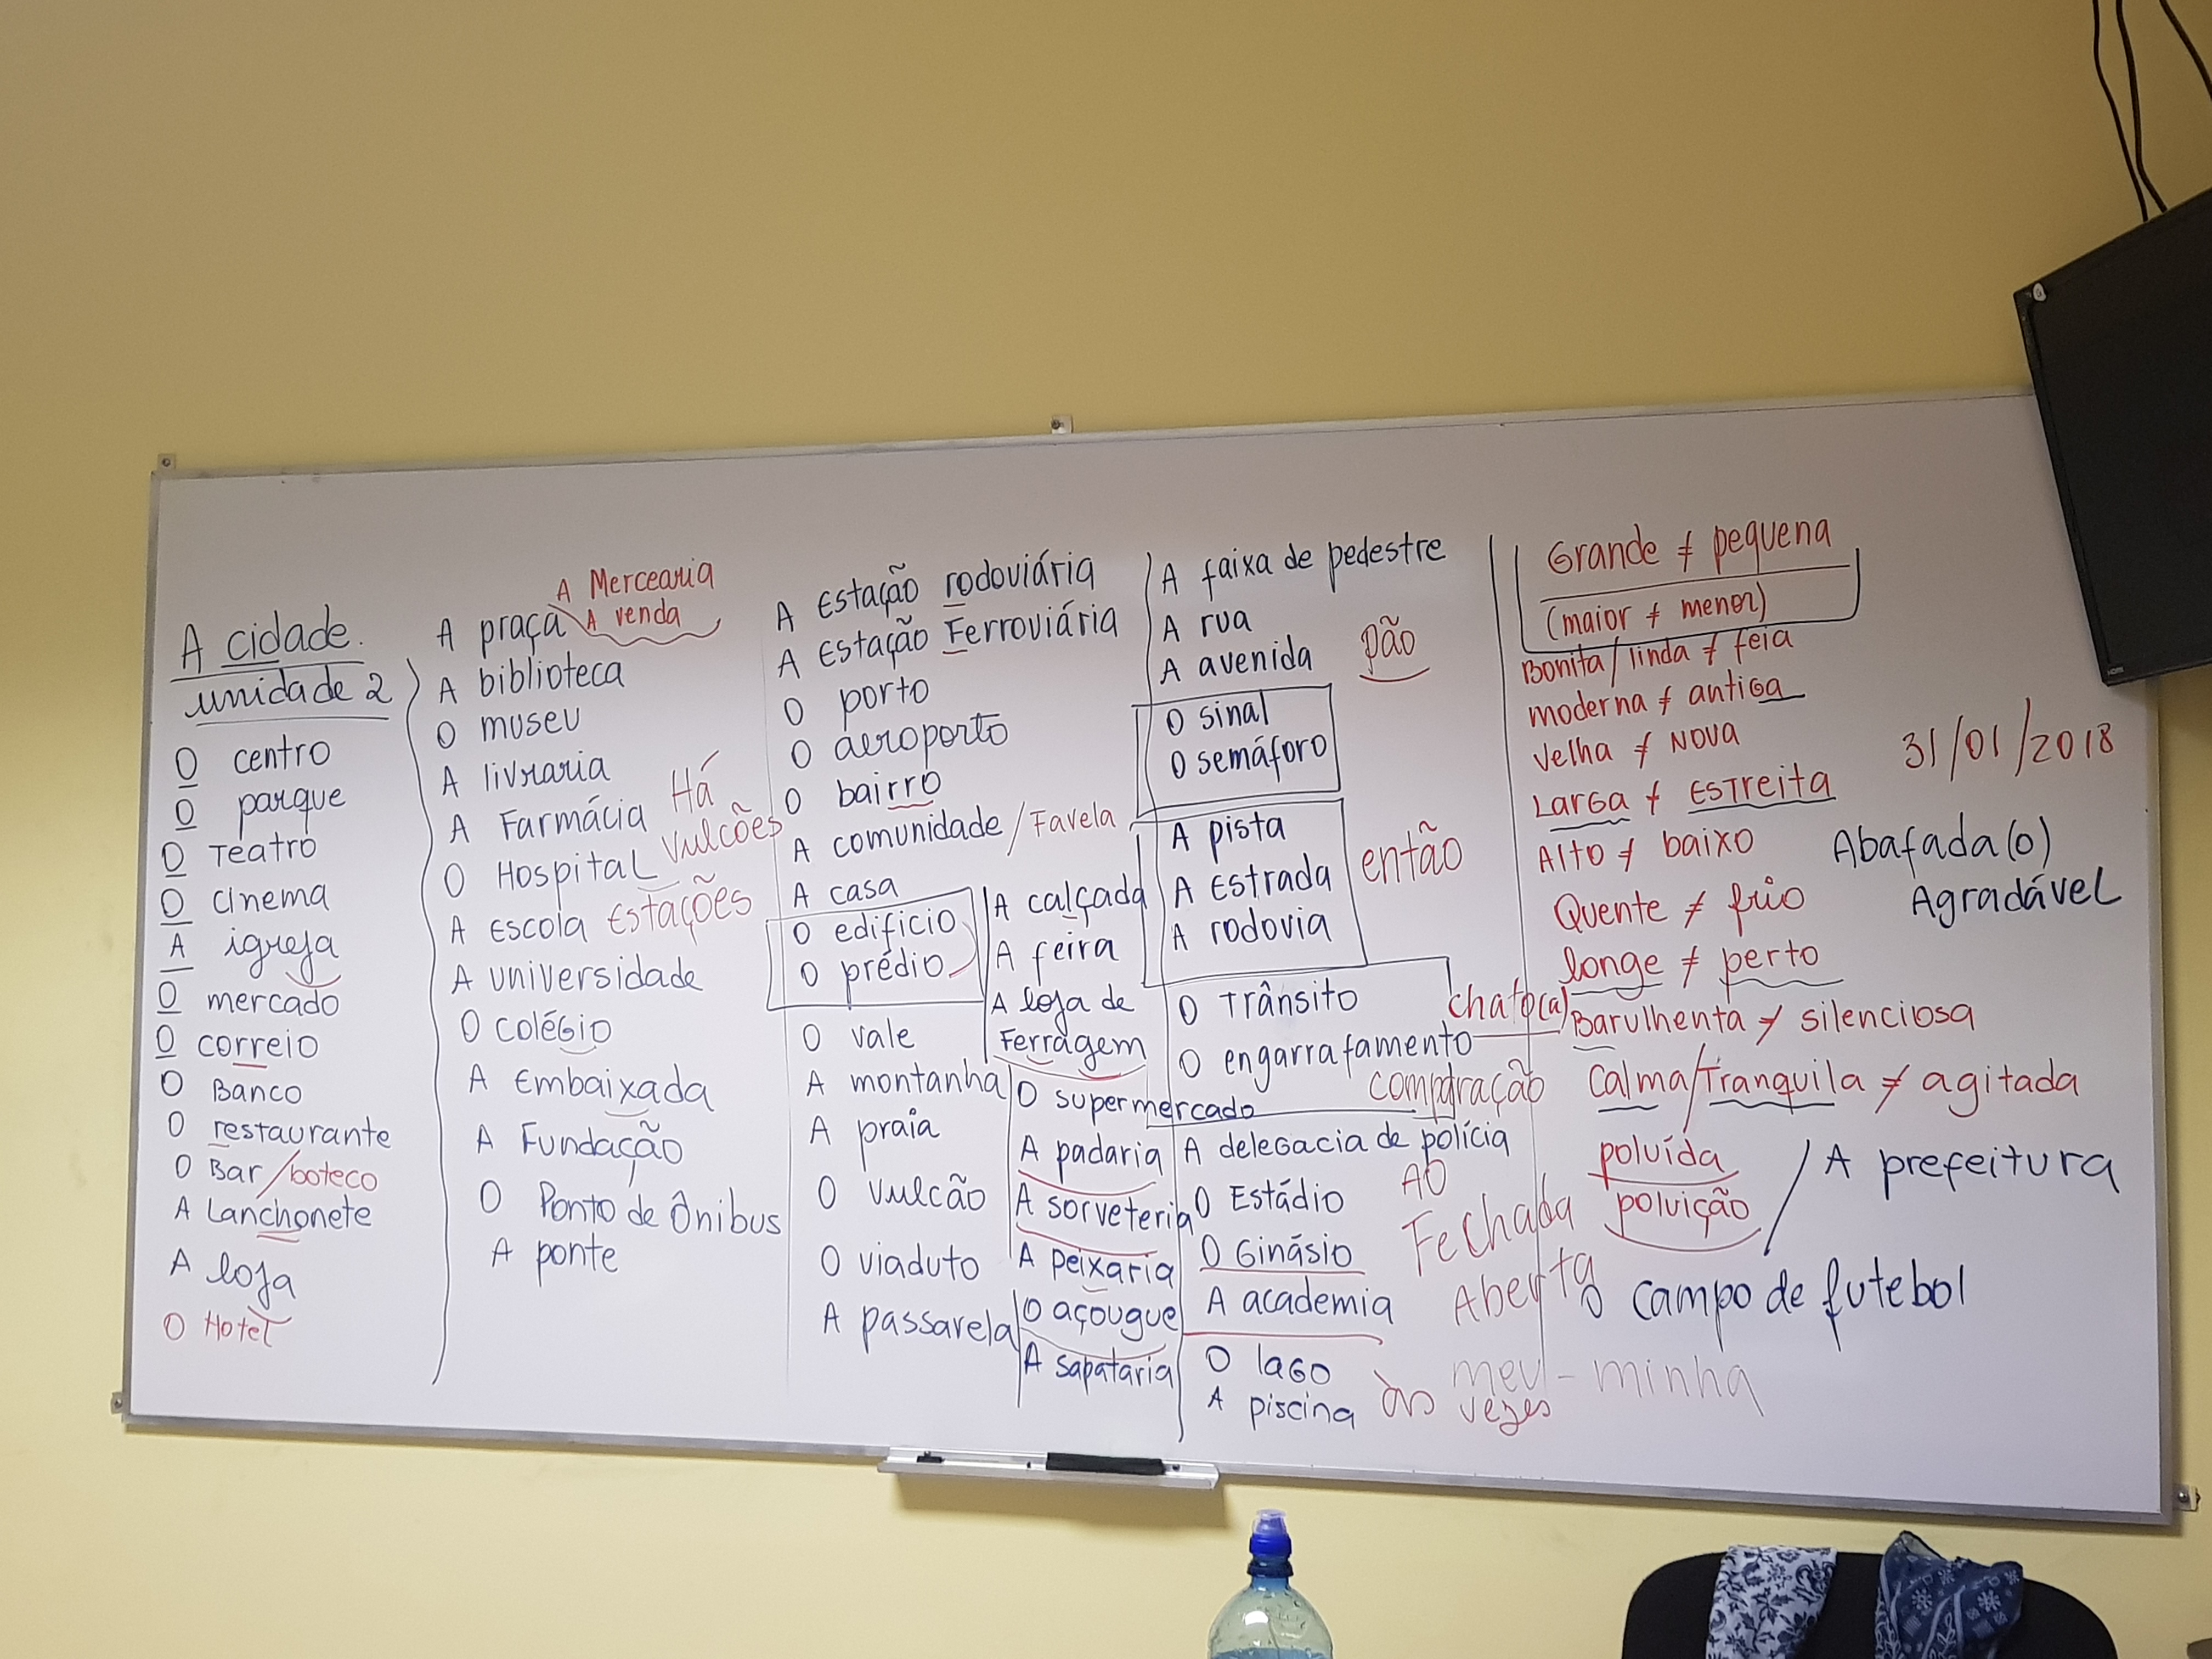 A cidade.
unidade 2
O centro
O parque
O Teatro
O Cinema
A igreja
O mercado
O correio
O Banco
O restaurante
O Bar / boteco
A Lanchonete
A loja
O Hotel
A Mercearia
A praça A venda
A biblioteca
O museu
A livraria
A Farmácia Há
Vulcões
O Hospital
A Escola Estações
A universidade
O colégio
A Embaixada
A Fundação
O Ponto de Ônibus
A ponte
A Estação rodoviária
A Estação Ferroviária
O porto
O aeroporto
O bairro
A comunidade / Favela
A casa
O edificio
O prédio
O vale
A montanha
A praia
O vulcão
O viaduto
A passarela
A calçada
A feira
A loja de
Ferragem
O supermercado
A padaria
A sorveteria
A peixaria
O açougue
A sapataria
A faixa de pedestre
A rua
A avenida
pão
O sinal
O semáforo
A pista
A Estrada
A rodovia
então
O Trânsito
O engarrafamento
chato(a)
comparação
A delegacia de polícia
O Estádio
O Ginásio
A academia
O lago
A piscina
AO
Fechada
Aberta
às vezes
meu - minha
Grande ≠ pequena
(maior ≠ menor)
Bonita / linda ≠ feia
moderna ≠ antiga
Velha ≠ Nova
Larga ≠ Estreita
Alto ≠ baixo
Quente ≠ frio
longe ≠ perto
Barulhenta ≠ silenciosa
Calma/Tranquila ≠ agitada
poluída
poluição
31/01/2018
Abafada(o)
Agradável
A prefeitura
O campo de futebol